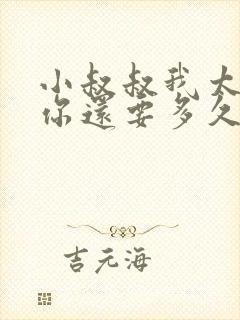 小叔叔我太
你還要多久
吉元海